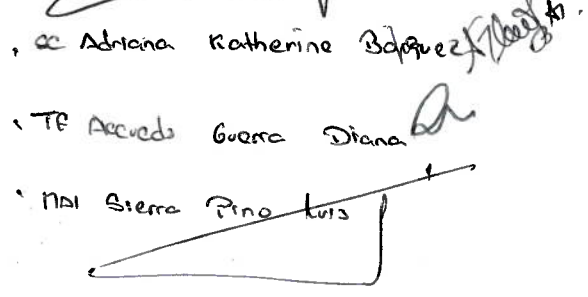 . CC Adriana Katherine Bojorquez
. TF Acevedo Guerra Diana
. MDI Sierra Pino Luis